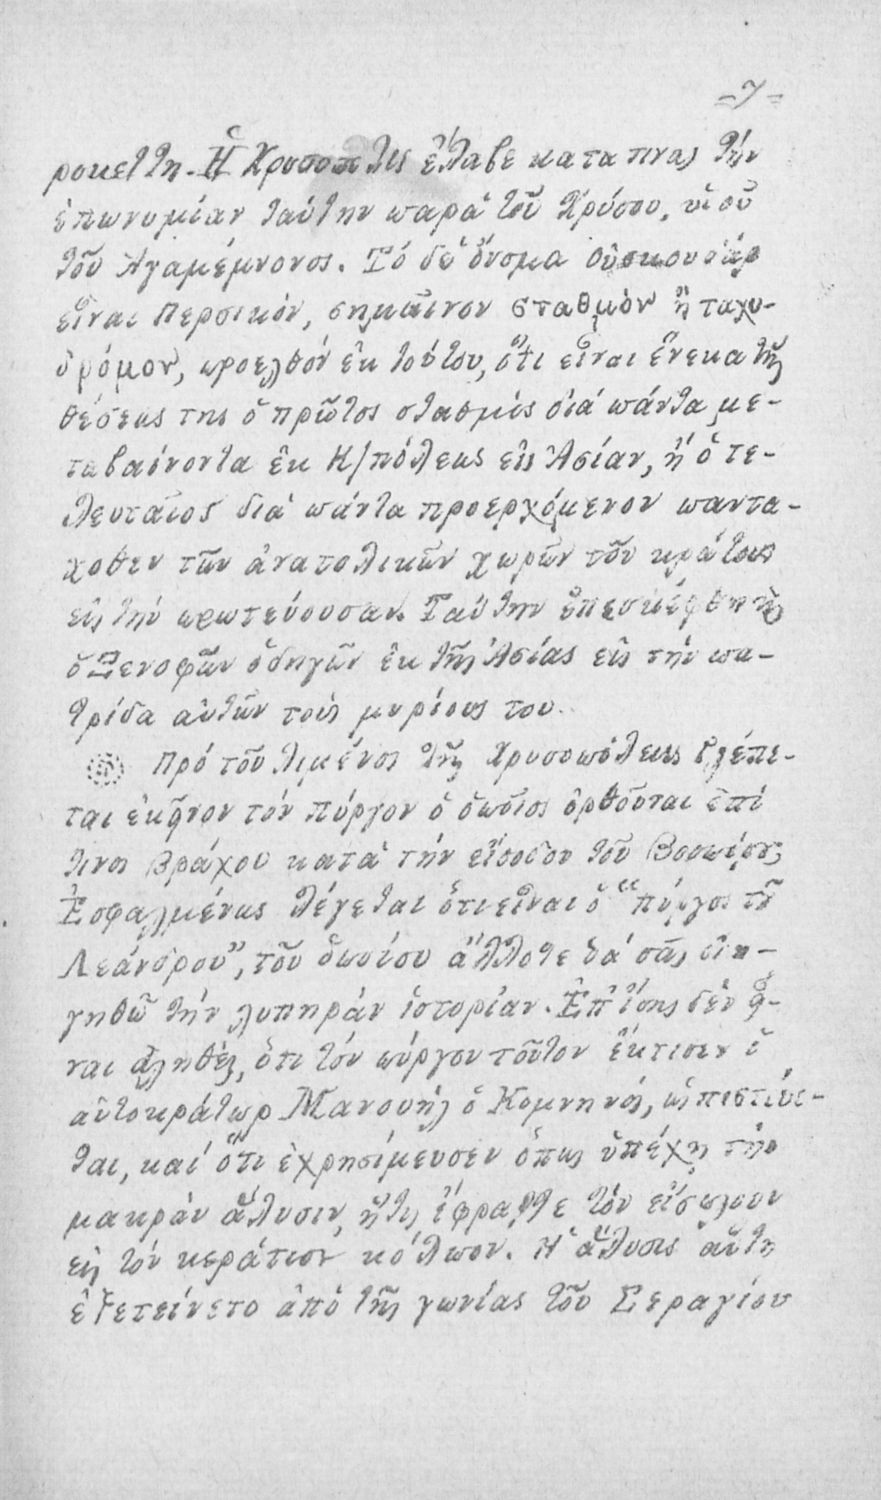 -7-
ροκεττη. Ἡ Χρυσοπολις ἔλαβε κατα τινας τήν
ἐπωνυμίαν ταύτην παρά τοῦ Χρύσου, υἱοῦ
τοῦ Ἀγαμέμνονος. Τό δέ ὄνομα Οὐσκουδάρ
εἶναι περσικόν, σημαῖνον σταθμόν ἤ ταχυ-
δρόμον, προελθόν ἐκ τούτου, ὅτι εἶναι ἕνεκα τῆς
θέσεως της ὁ πρῶτος σταθμός διά πάντα με-
ταβαίνοντα ἐκ Κ/πόλεως εἰς Ἀσίαν, ἤ ὁ τε-
λευταῖος διά πάντα προερχόμενον παντα-
χοθεν τῶν ἀνατολικῶν χωρῶν τοῦ κράτους
εἰς τήν πρωτεύουσαν. Ταύτην ἐπεσκέφθη
ὁ Ξενοφῶν ὁδηγῶν ἐκ τῆς Ἀσίας εἰς τήν πα-
τρίδα αὐτῶν τούς μυρίους του.
Πρό τοῦ λιμένος τῆς Χρυσοπόλεως βλέπε-
ται ἐκεῖνον τόν πύργον ὁ ὁποῖος ὀρθοῦται ἐπί
τινος βράχου κατά τήν εἴσοδον τοῦ Βοσπόρου;
Ἐσφαλμένως λέγεται ὅτι εἶναι ὁ "πύργος τοῦ
Λεάνδρου", τοῦ ὁποίου ἄλλοτε θά σᾶς διη-
γηθῶ τήν λυπηράν ἱστορίαν. Ἐπ' ἴσης δέν εἶ-
ναι ἀληθές, ὅτι τόν πύργον τοῦτον ἔκτισεν ὁ
αὐτοκράτωρ Μανουήλ ὁ Κομνηνός, ὡς πιστεύε-
ται, καί ὅτι ἐχρησίμευσεν ὅπως ὑπέχῃ τήν
μακράν ἅλυσιν, ἥτις ἔφραττε τόν εἴσπλουν
εἰς τόν κεράτιον κόλπον. Ἡ ἅλυσις αὕτη
ἐξετείνετο ἀπό τῆς γωνίας τοῦ Σεραγίου